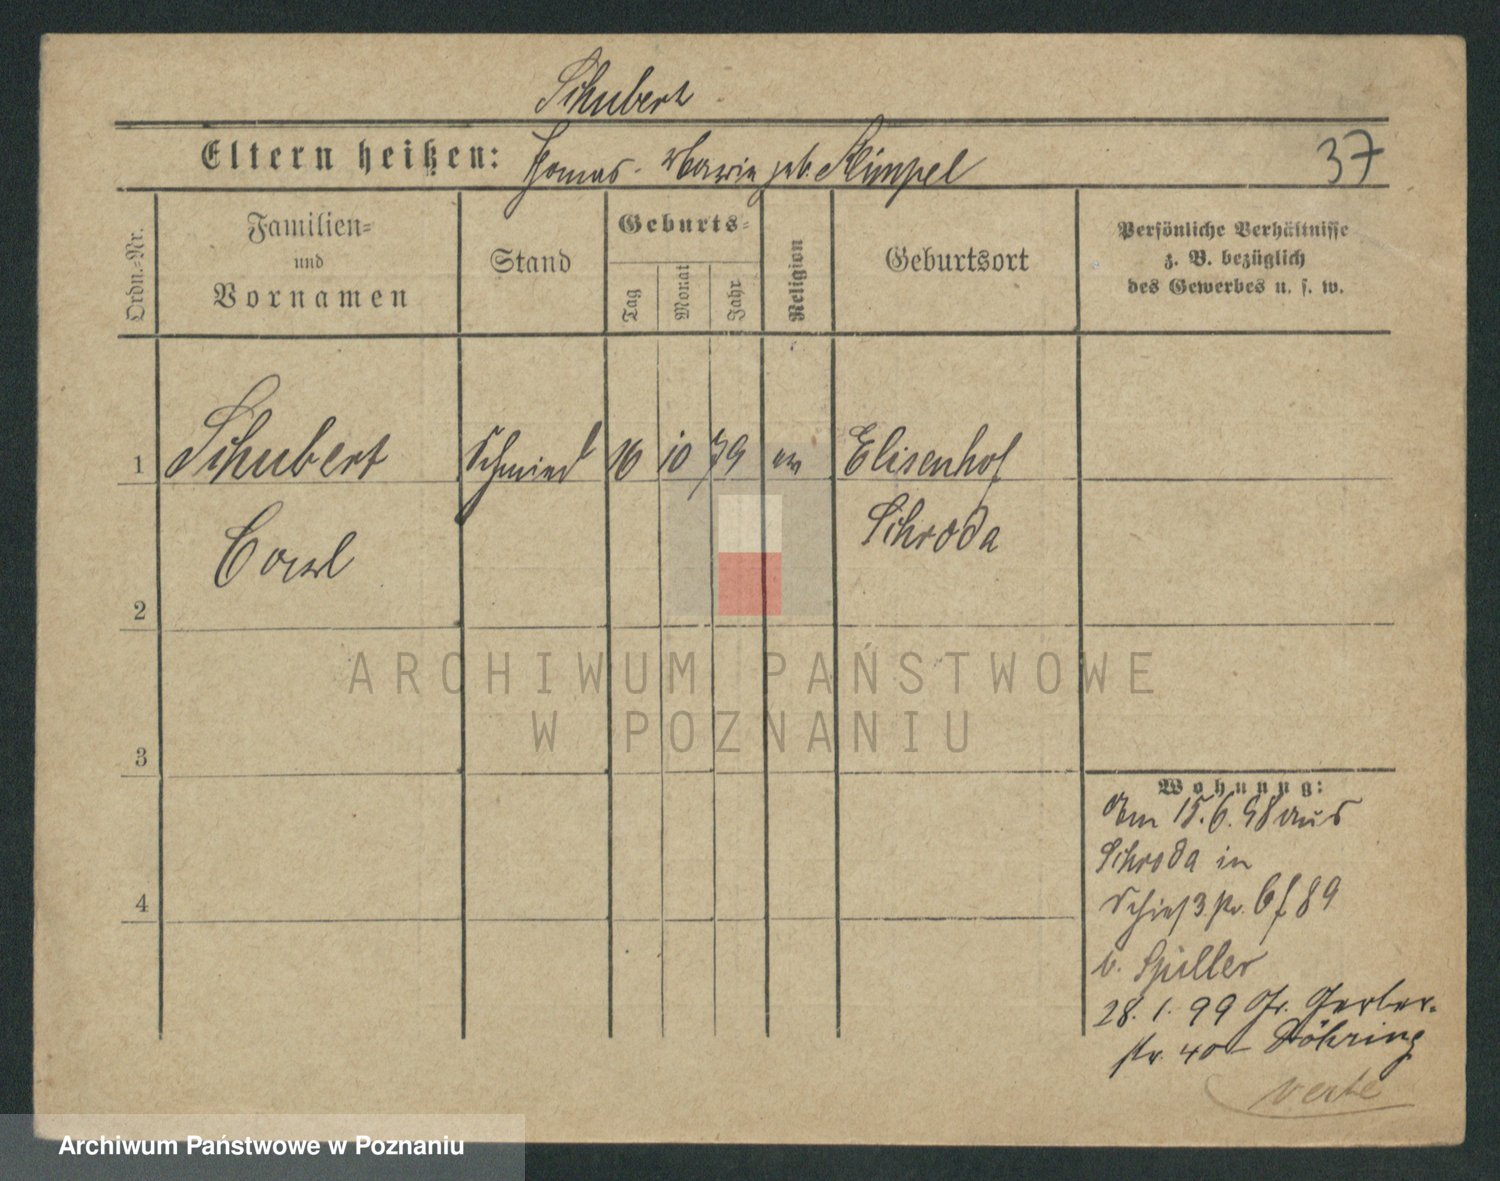 Schubert
Eltern heißen: Thomas - Maria geb. Klimpel
37
Ordn.-Nr.
Familien-
und
Vornamen
Stand
Geburts-
Tag
Monat
Jahr
Religion
Geburtsort
Persönliche Verhältnisse
z. B. bezüglich
des Gewerbes u. s. w.
1 Schubert Schmied 16 10 79 ev Elisenhof
Carl Schroda
2
ARCHIWUM PAŃSTWOWE
W POZNANIU
3
Wohnung:
Am 15.6.98 aus
Schroda in
4
Schießstr. 6 f 89
b. Spiller
28.1.99 Gr. Gerber-
str. 40 Döhring
verte
Archiwum Państwowe w Poznaniu